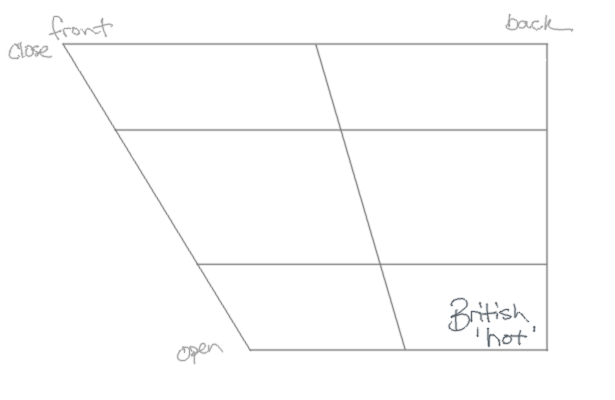 front back
close
British
'hot'
open